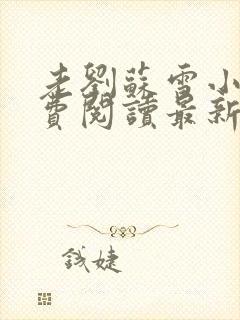 走劉蘇雪小
費閱讀最新
錢婕